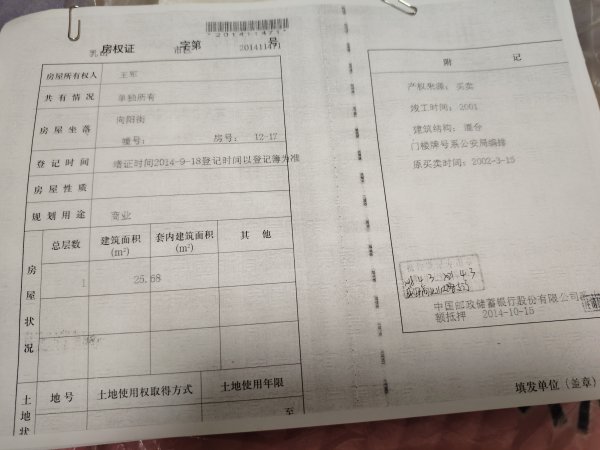 *201411471*
房权证 字第 号
乳山 市 201411471
房屋所有权人 王军
共有情况 单独所有
房屋坐落 向阳街
幢号: 房号: 12-17
登记时间 缮证时间2014-9-18登记时间以登记簿为准
房屋性质
规划用途 商业
房屋状况
总层数 建筑面积(m²) 套内建筑面积(m²) 其他
1 25.68
土地状
地号 土地使用权取得方式 土地使用年限
至
附记
产权来源: 买卖
竣工时间: 2001
建筑结构: 混合
门楼牌号系公安局编排
原买卖时间: 2002-3-15
中国邮政储蓄银行股份有限公司
额抵押 2014-10-15
填发单位 (盖章)